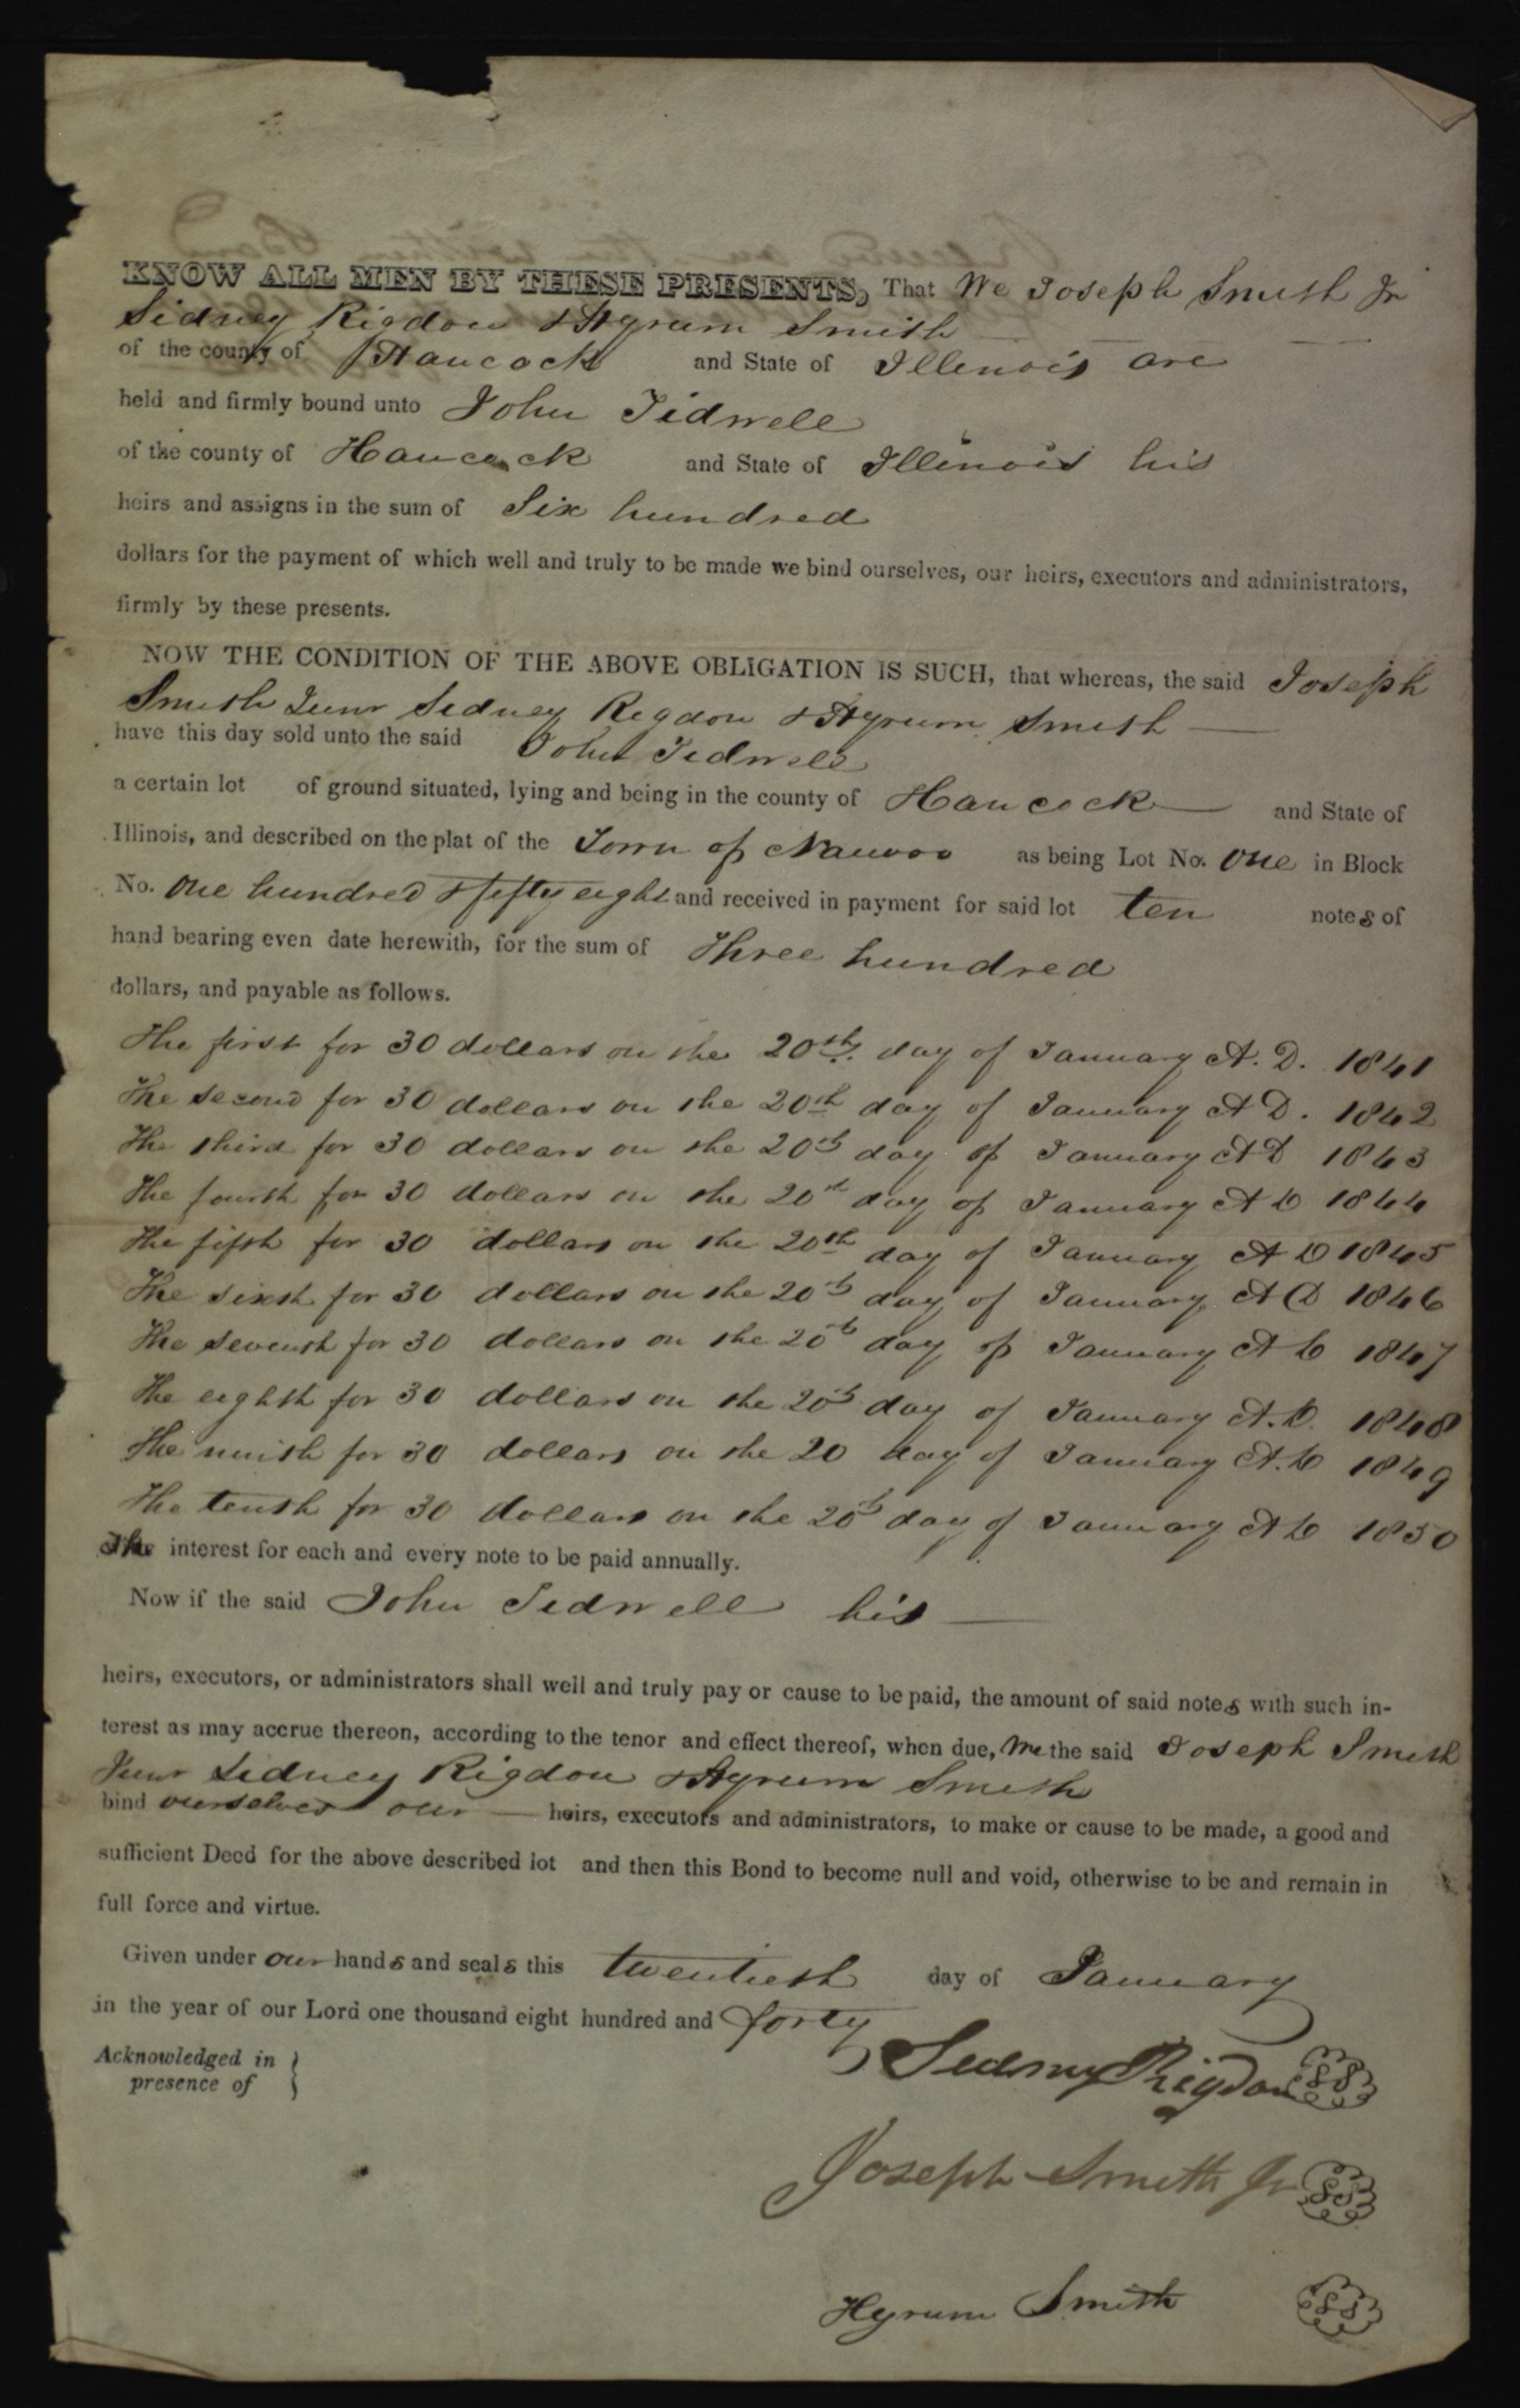 KNOW ALL MEN BY THESE PRESENTS, That We Joseph Smith Jr
Sidney Rigdon & Hyrum Smith
of the county of Hancock and State of Illinois are
held and firmly bound unto John Tidwell
of the county of Hancock and State of Illinois his
heirs and assigns in the sum of Six hundred
dollars for the payment of which well and truly to be made we bind ourselves, our heirs, executors and administrators,
firmly by these presents.
NOW THE CONDITION OF THE ABOVE OBLIGATION IS SUCH, that whereas, the said Joseph
Smith Junr Sidney Rigdon & Hyrum Smith
have this day sold unto the said John Tidwell
a certain lot of ground situated, lying and being in the county of Hancock and State of
Illinois, and described on the plat of the Town of Nauvoo as being Lot No. one in Block
No. one hundred & fifty eight and received in payment for said lot ten notes of
hand bearing even date herewith, for the sum of Three hundred
dollars, and payable as follows.
The first for 30 dollars on the 20th. day of January A. D. 1841
The second for 30 dollars on the 20th day of January A D. 1842
The third for 30 dollars on the 20th day of January A D 1843
The fourth for 30 dollars on the 20th day of January A D 1844
The fifth for 30 dollars on the 20th day of January A D 1845
The sixth for 30 dollars on the 20th day of January A D 1846
The seventh for 30 dollars on the 20th day of January A D 1847
The eighth for 30 dollars on the 20th day of January A. D. 1848
The ninth for 30 dollars on the 20 day of January A. D 1849
The tenth for 30 dollars on the 20th day of January A D 1850
The interest for each and every note to be paid annually.
Now if the said John Tidwell his
heirs, executors, or administrators shall well and truly pay or cause to be paid, the amount of said notes with such in-
terest as may accrue thereon, according to the tenor and effect thereof, when due, We the said Joseph Smith
Junr Sidney Rigdon & Hyrum Smith
bind ourselves our heirs, executors and administrators, to make or cause to be made, a good and
sufficient Deed for the above described lot and then this Bond to become null and void, otherwise to be and remain in
full force and virtue.
Given under our hands and seals this twentieth day of January
in the year of our Lord one thousand eight hundred and forty
Acknowledged in
presence of }
Sidney Rigdon SS
Joseph Smith Jr SS
Hyrum Smith SS